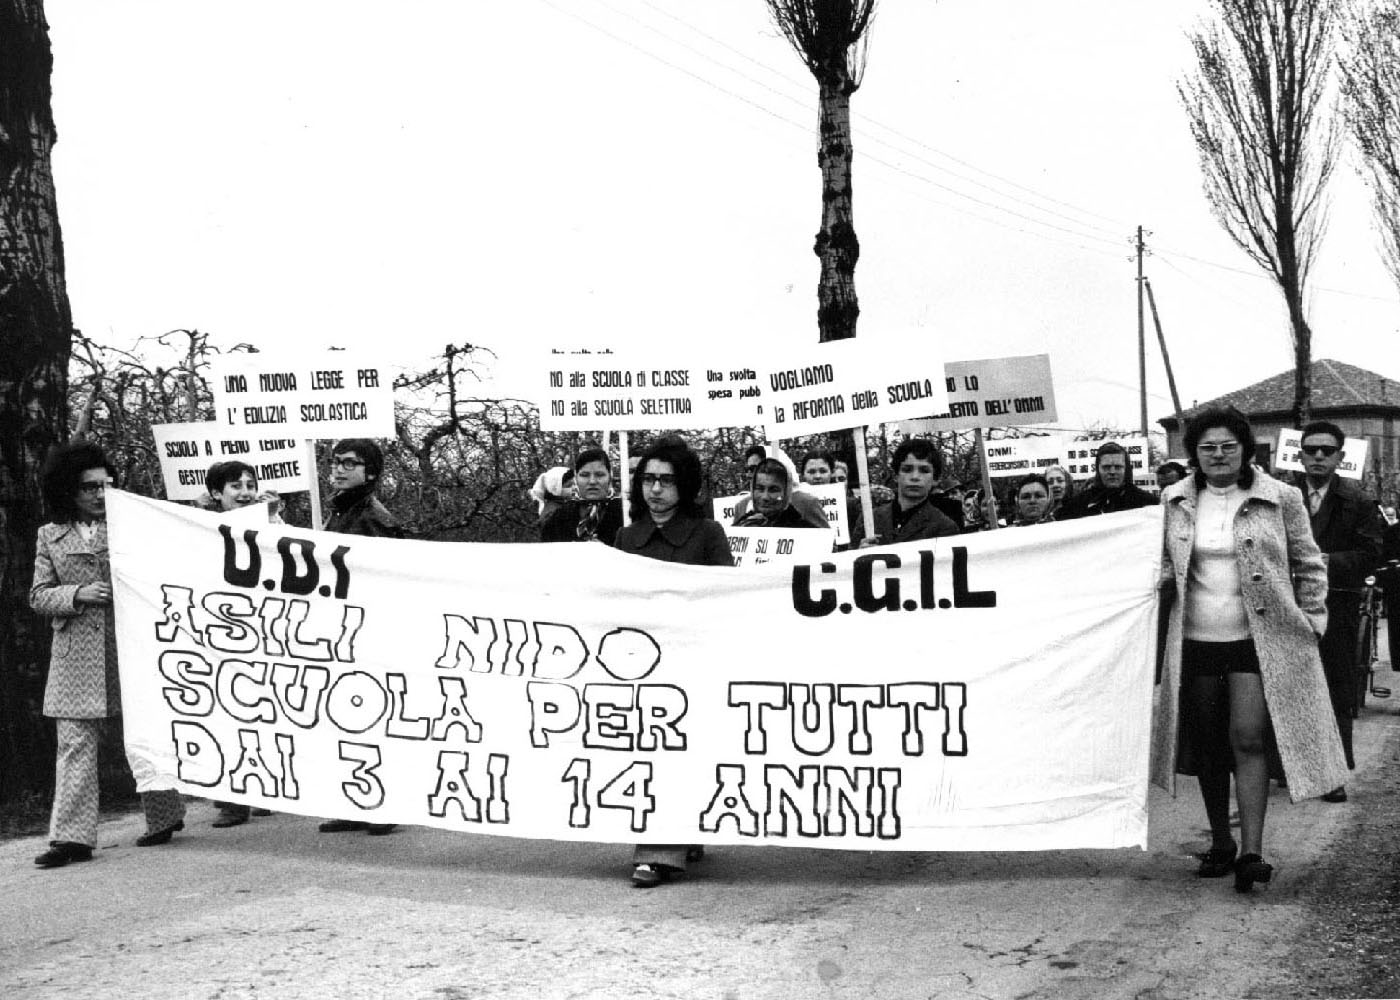 UNA NUOVA LEGGE PER
L'EDILIZIA SCOLASTICA
SCUOLA A PIENO TEMPO
GESTI LMENTE
NO alla SCUOLA di CLASSE
NO alla SCUOLA SELETTIVA
Una svolta
spesa pubb
VOGLIAMO
la RIFORMA della SCUOLA
LO
MENTO DELL'ONMI
ONMI:
NO alla SC LASSE
NO alla
BINI SU 100
U.D.I C.G.I.L
ASILI NIDO
SCUOLA PER TUTTI
DAI 3 AI 14 ANNI